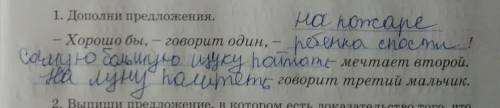 1. Дополни предложения.
на пожаре
– Хорошо бы, – говорит один, – ребёнка спасти !
самую большую щуку поймать мечтает второй.
На луну полететь говорит третий мальчик.
2. Выпиши предложение, в котором есть доказательство того, что